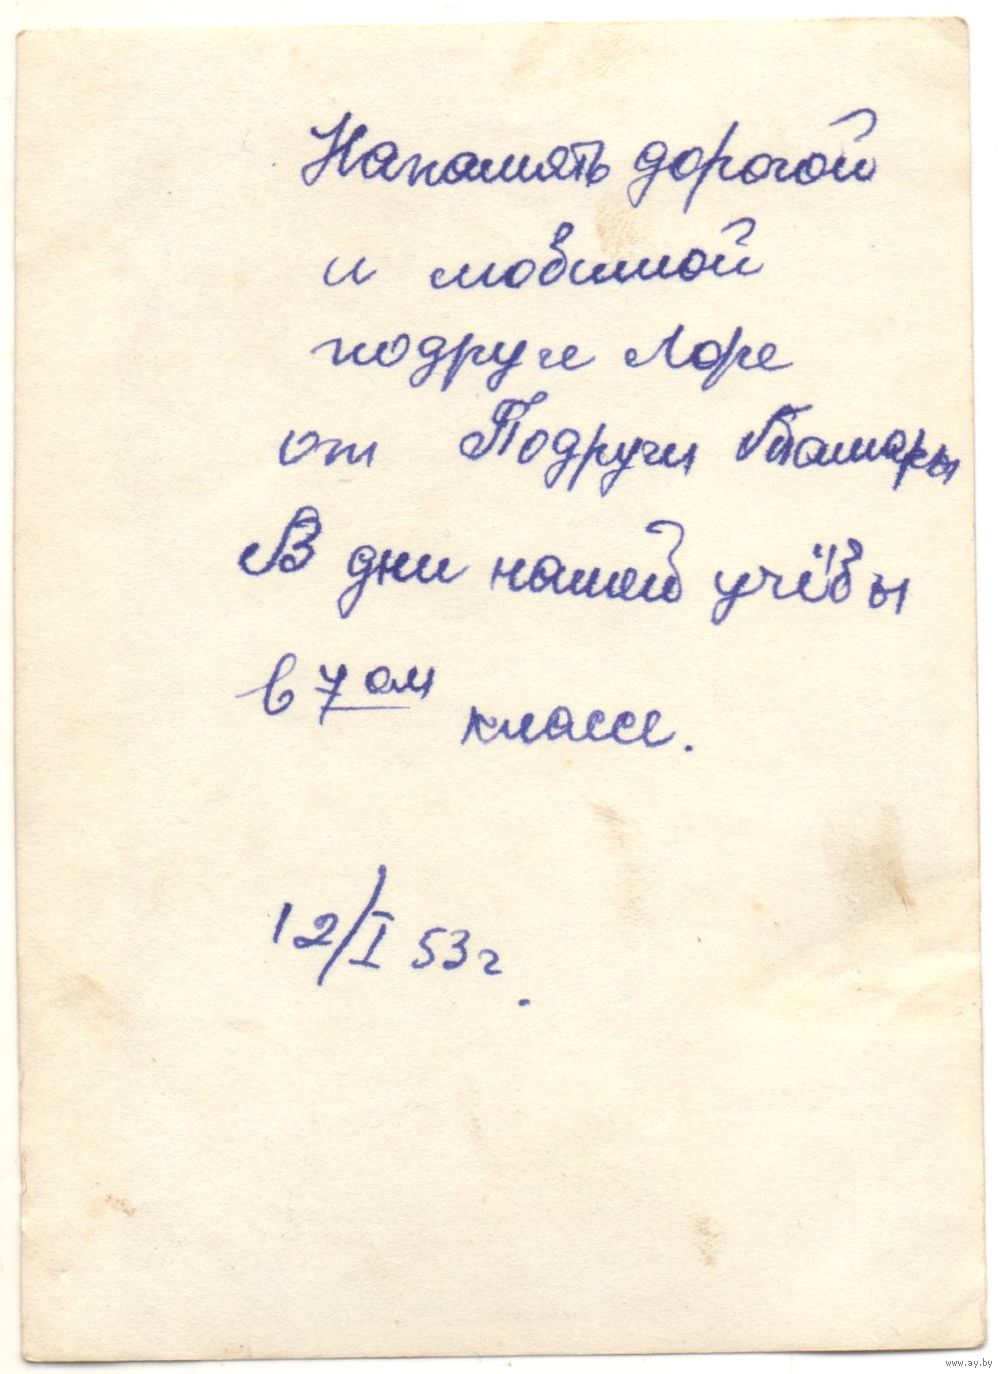 Напамять дорогой
и любимой
подруге Лоре
от Подруги Тамары
В дни нашей учёбы
в 7ом классе.
12/I 53г.
www.ay.by